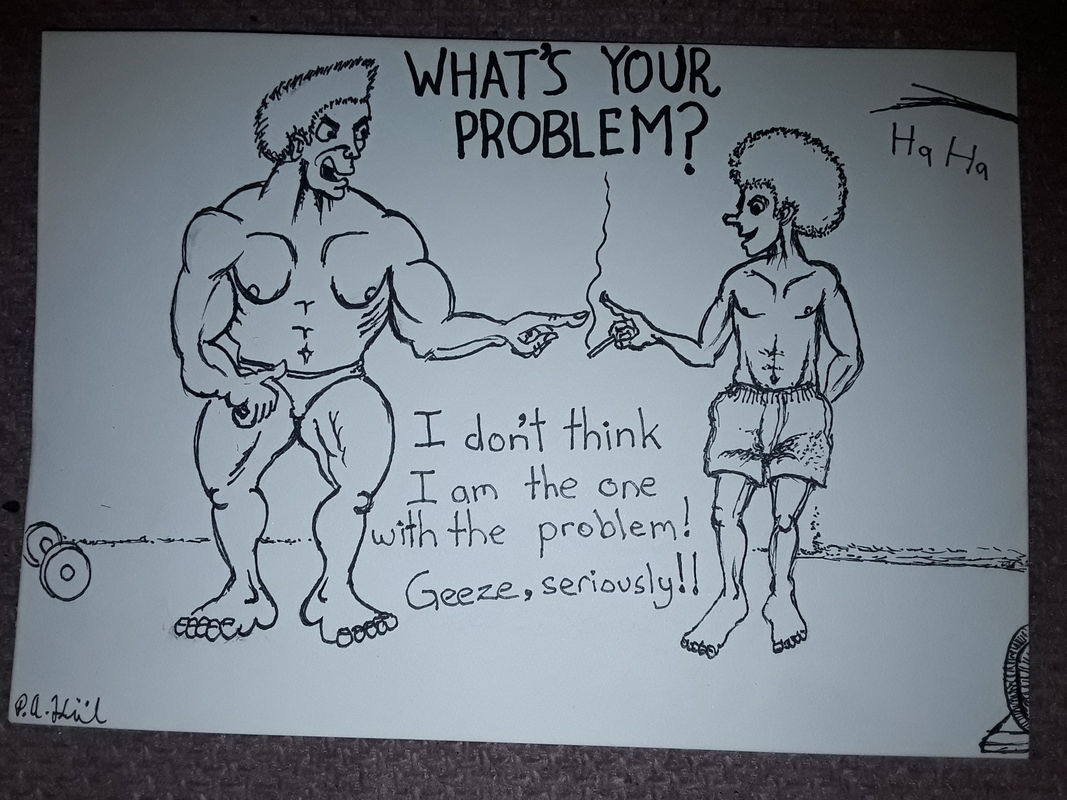 WHAT'S YOUR
PROBLEM?
Ha Ha
I don't think
I am the one
with the problem!
Geeze, seriously!!
P.A.